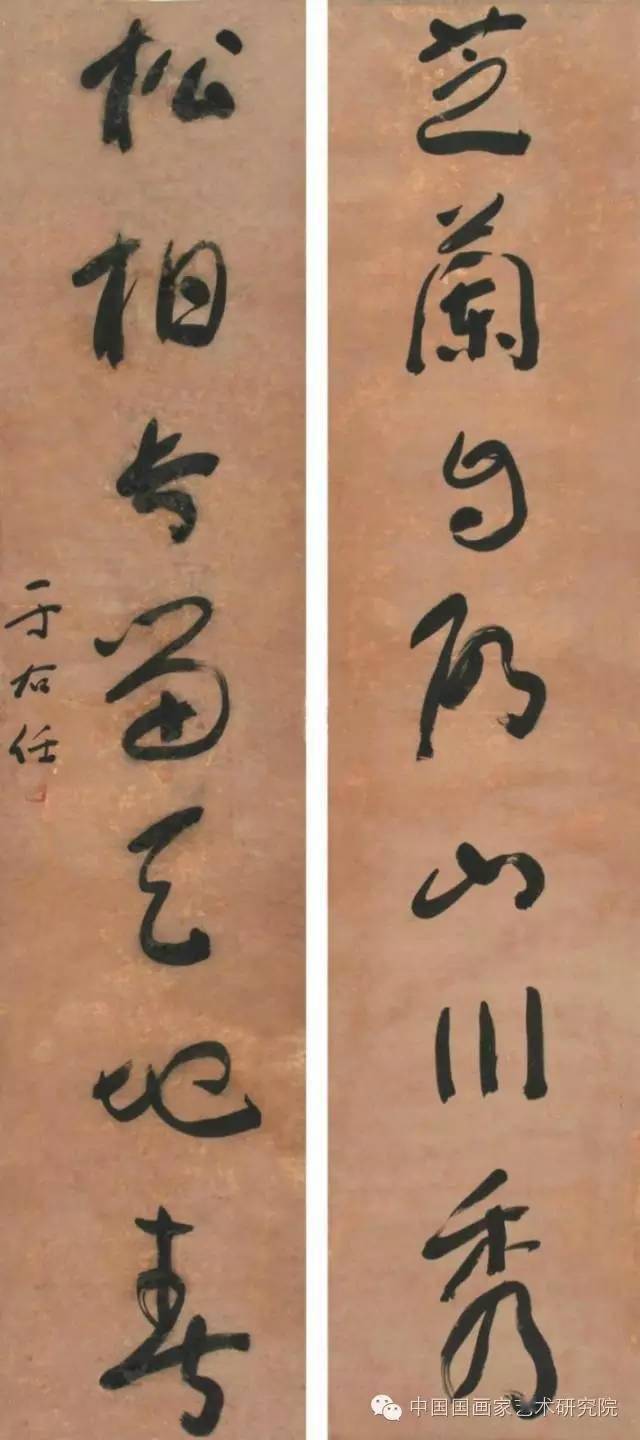 芝蘭山川秀
松柏長留天地春
于右任
中国国画家艺术研究院